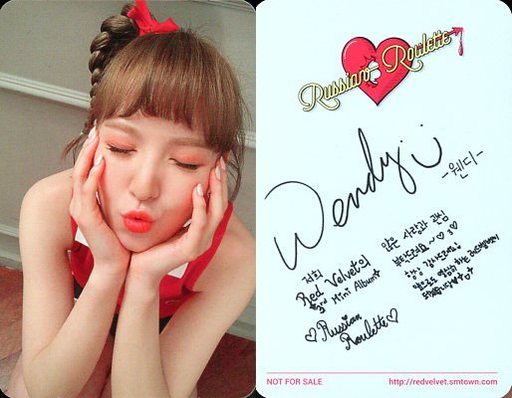 Russian Roulette
Wendy
-웬디-
저희
Red Velvet의
3rd Mini Album
♡Russian
Roulette♡
많은 사랑과 관심
부탁드려요~♡3♡
항상 감사드리고
NOT FOR SALE
http://redvelvet.smtown.com